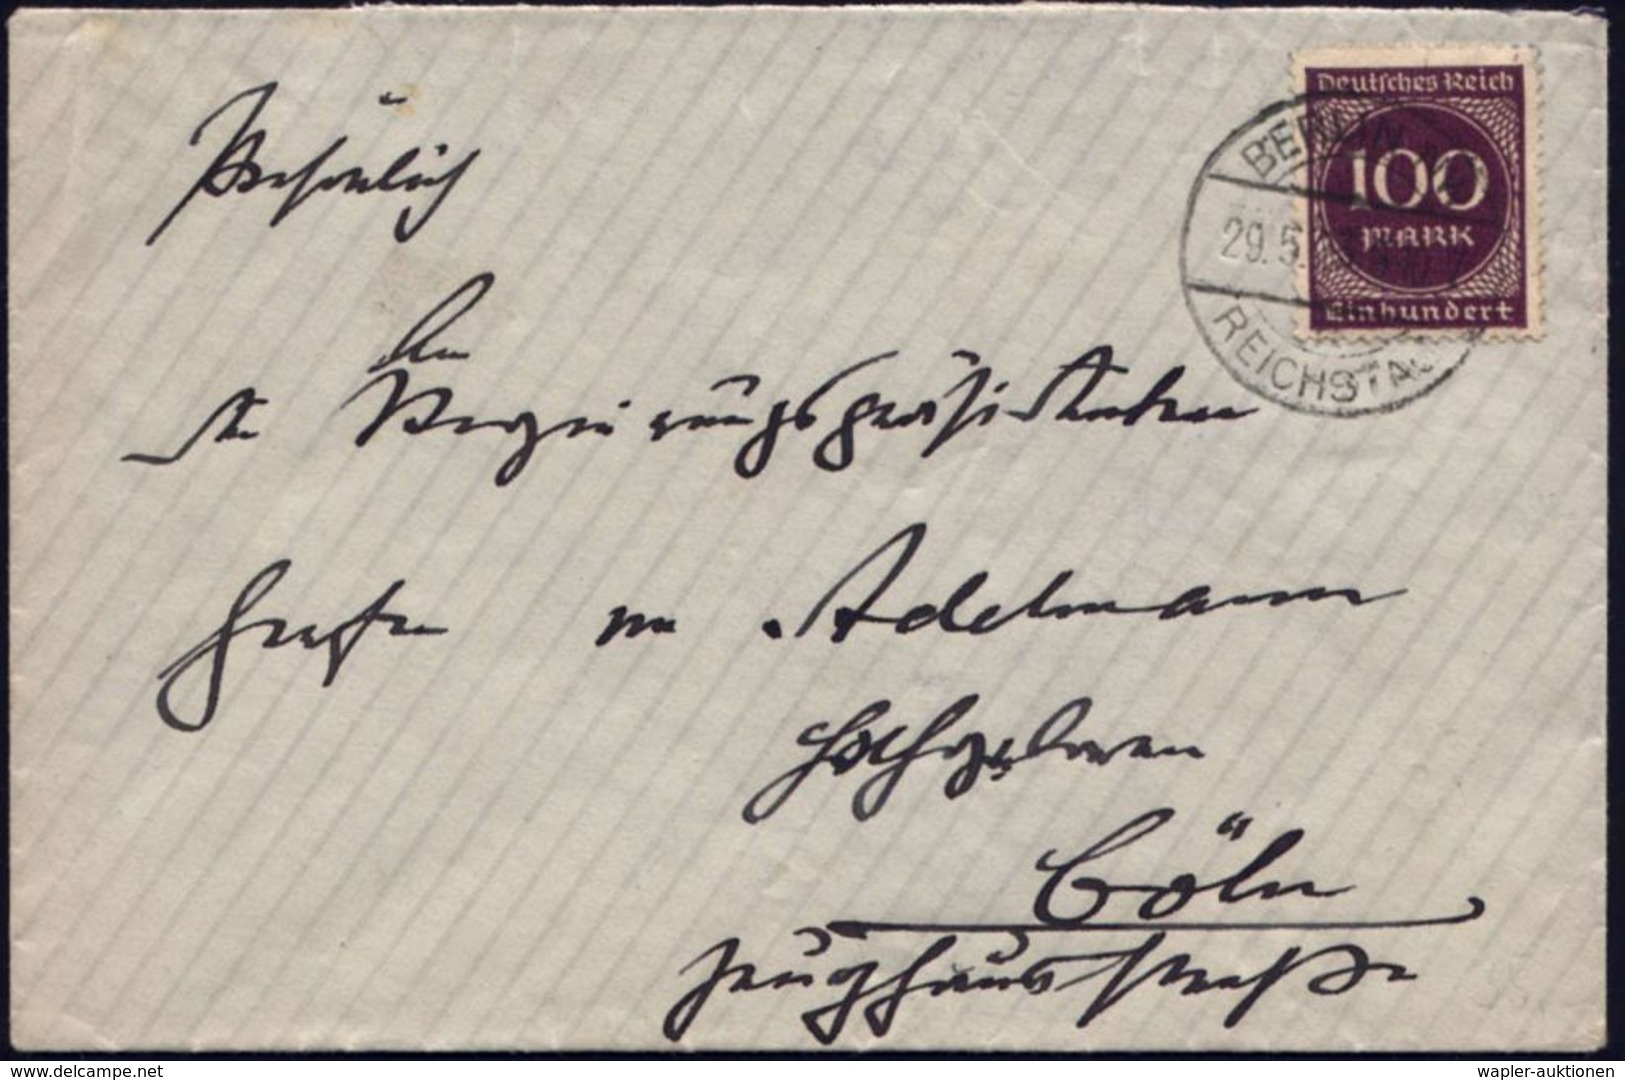 Deutsches Reich
100
MARK
Einhundert
BERLIN
29.5.
REICHSTAG
Persönlich
An
den Regierungspräsidenten
Grafen von Adelmann
Hochgeboren
Cöln
Zeughausstraße
www.delcampe.net
wapler-auktionen